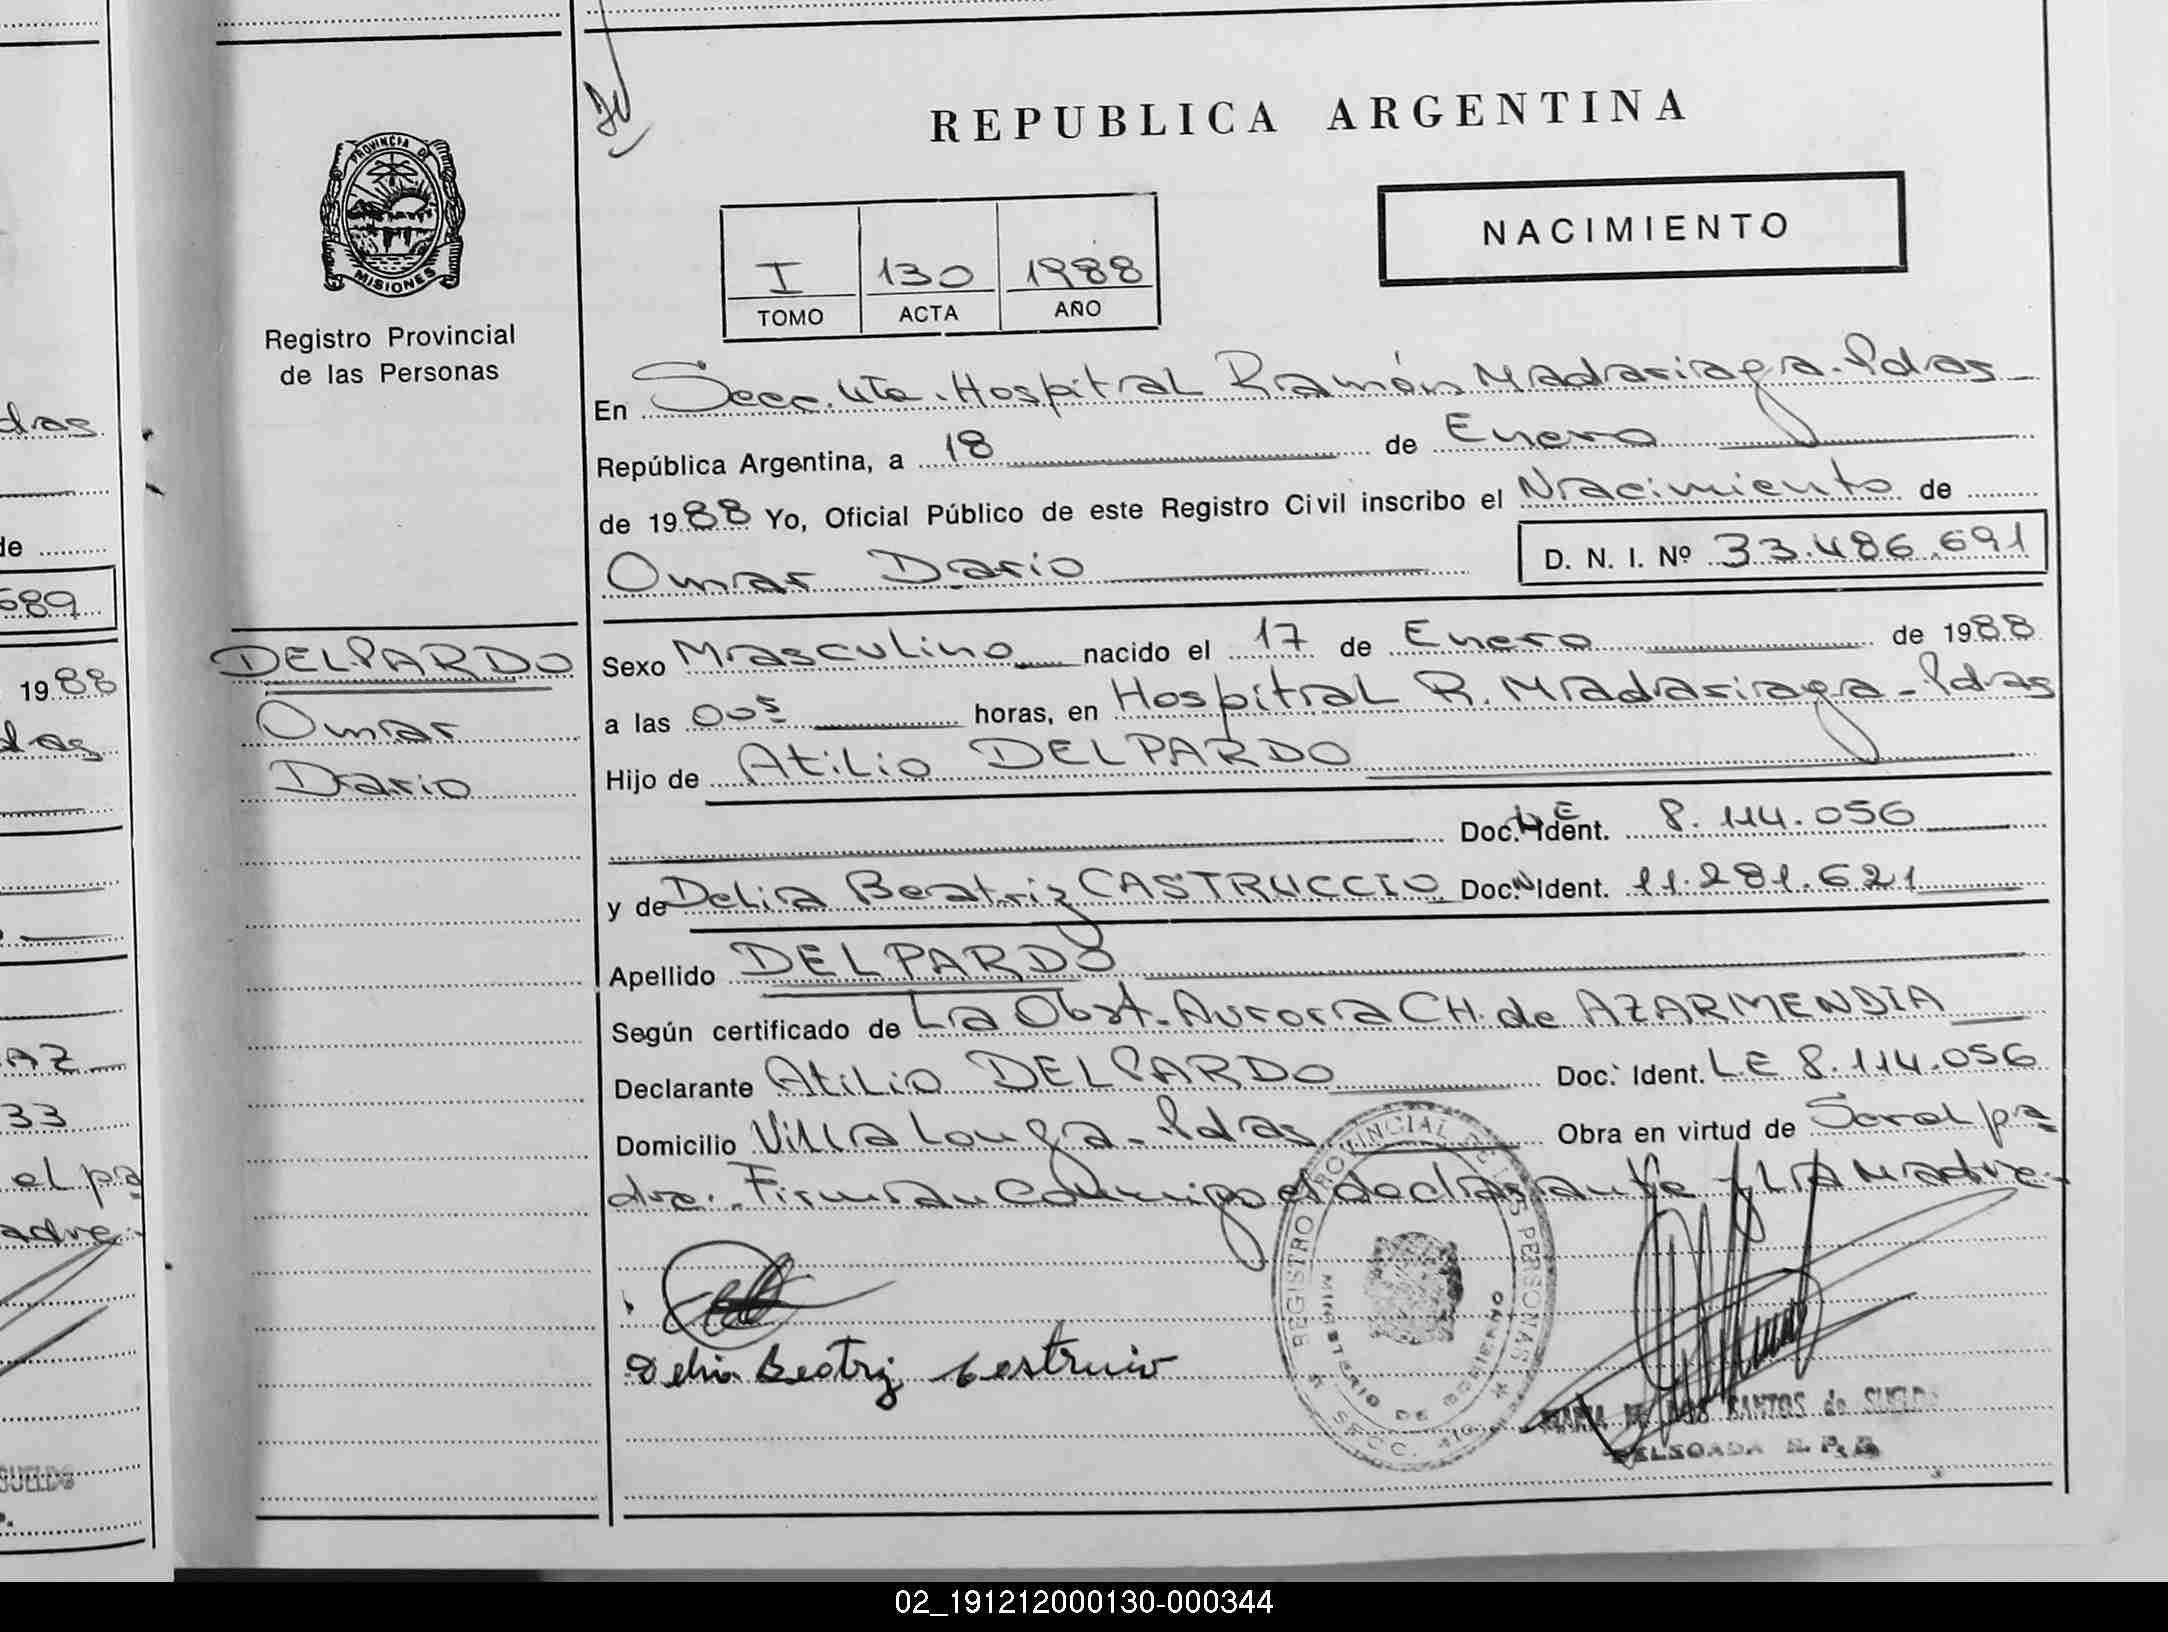 REPUBLICA ARGENTINA
PROVINCIA DE
MISIONES
Registro Provincial
de las Personas
NACIMIENTO
I 130 1988
TOMO ACTA AÑO
En Secc. 4ta. Hospital Ramón Madariaga - Pdas
República Argentina, a 18 de Enero
de 1988 Yo, Oficial Público de este Registro Civil inscribo el Nacimiento de
Omar Dario D. N. I. Nº 33.486.691
DELPARDO
Omar
Dario
Sexo Masculino nacido el 17 de Enero de 1988
a las 00⁵ horas, en Hospital R. Madariaga - Pdas
Hijo de Atilio DELPARDO
Doc. LE Ident. 8.114.056
y de Delia Beatriz CASTRUCCIO Doc. N Ident. 11.281.621
Apellido DELPARDO
Según certificado de La Obst. Aurora CH. de AZARMENDIA
Declarante Atilio DELPARDO Doc. Ident. LE 8.114.056
Domicilio Villa Longa - Pdas Obra en virtud de Ser el pa
dre. Firman conmigo el declarante y LA Madre.
REGISTRO PROVINCIAL DE LAS PERSONAS
MINISTERIO DE GOBIERNO
SECC. 4ta.
Delia Beatriz Castruccio
MARIA DE LOS SANTOS de SUELDO
DELEGADA R. P. P.
das
de
689
1988
das
AZ
33
el pa
adre.
SUELDO
02_191212000130-000344